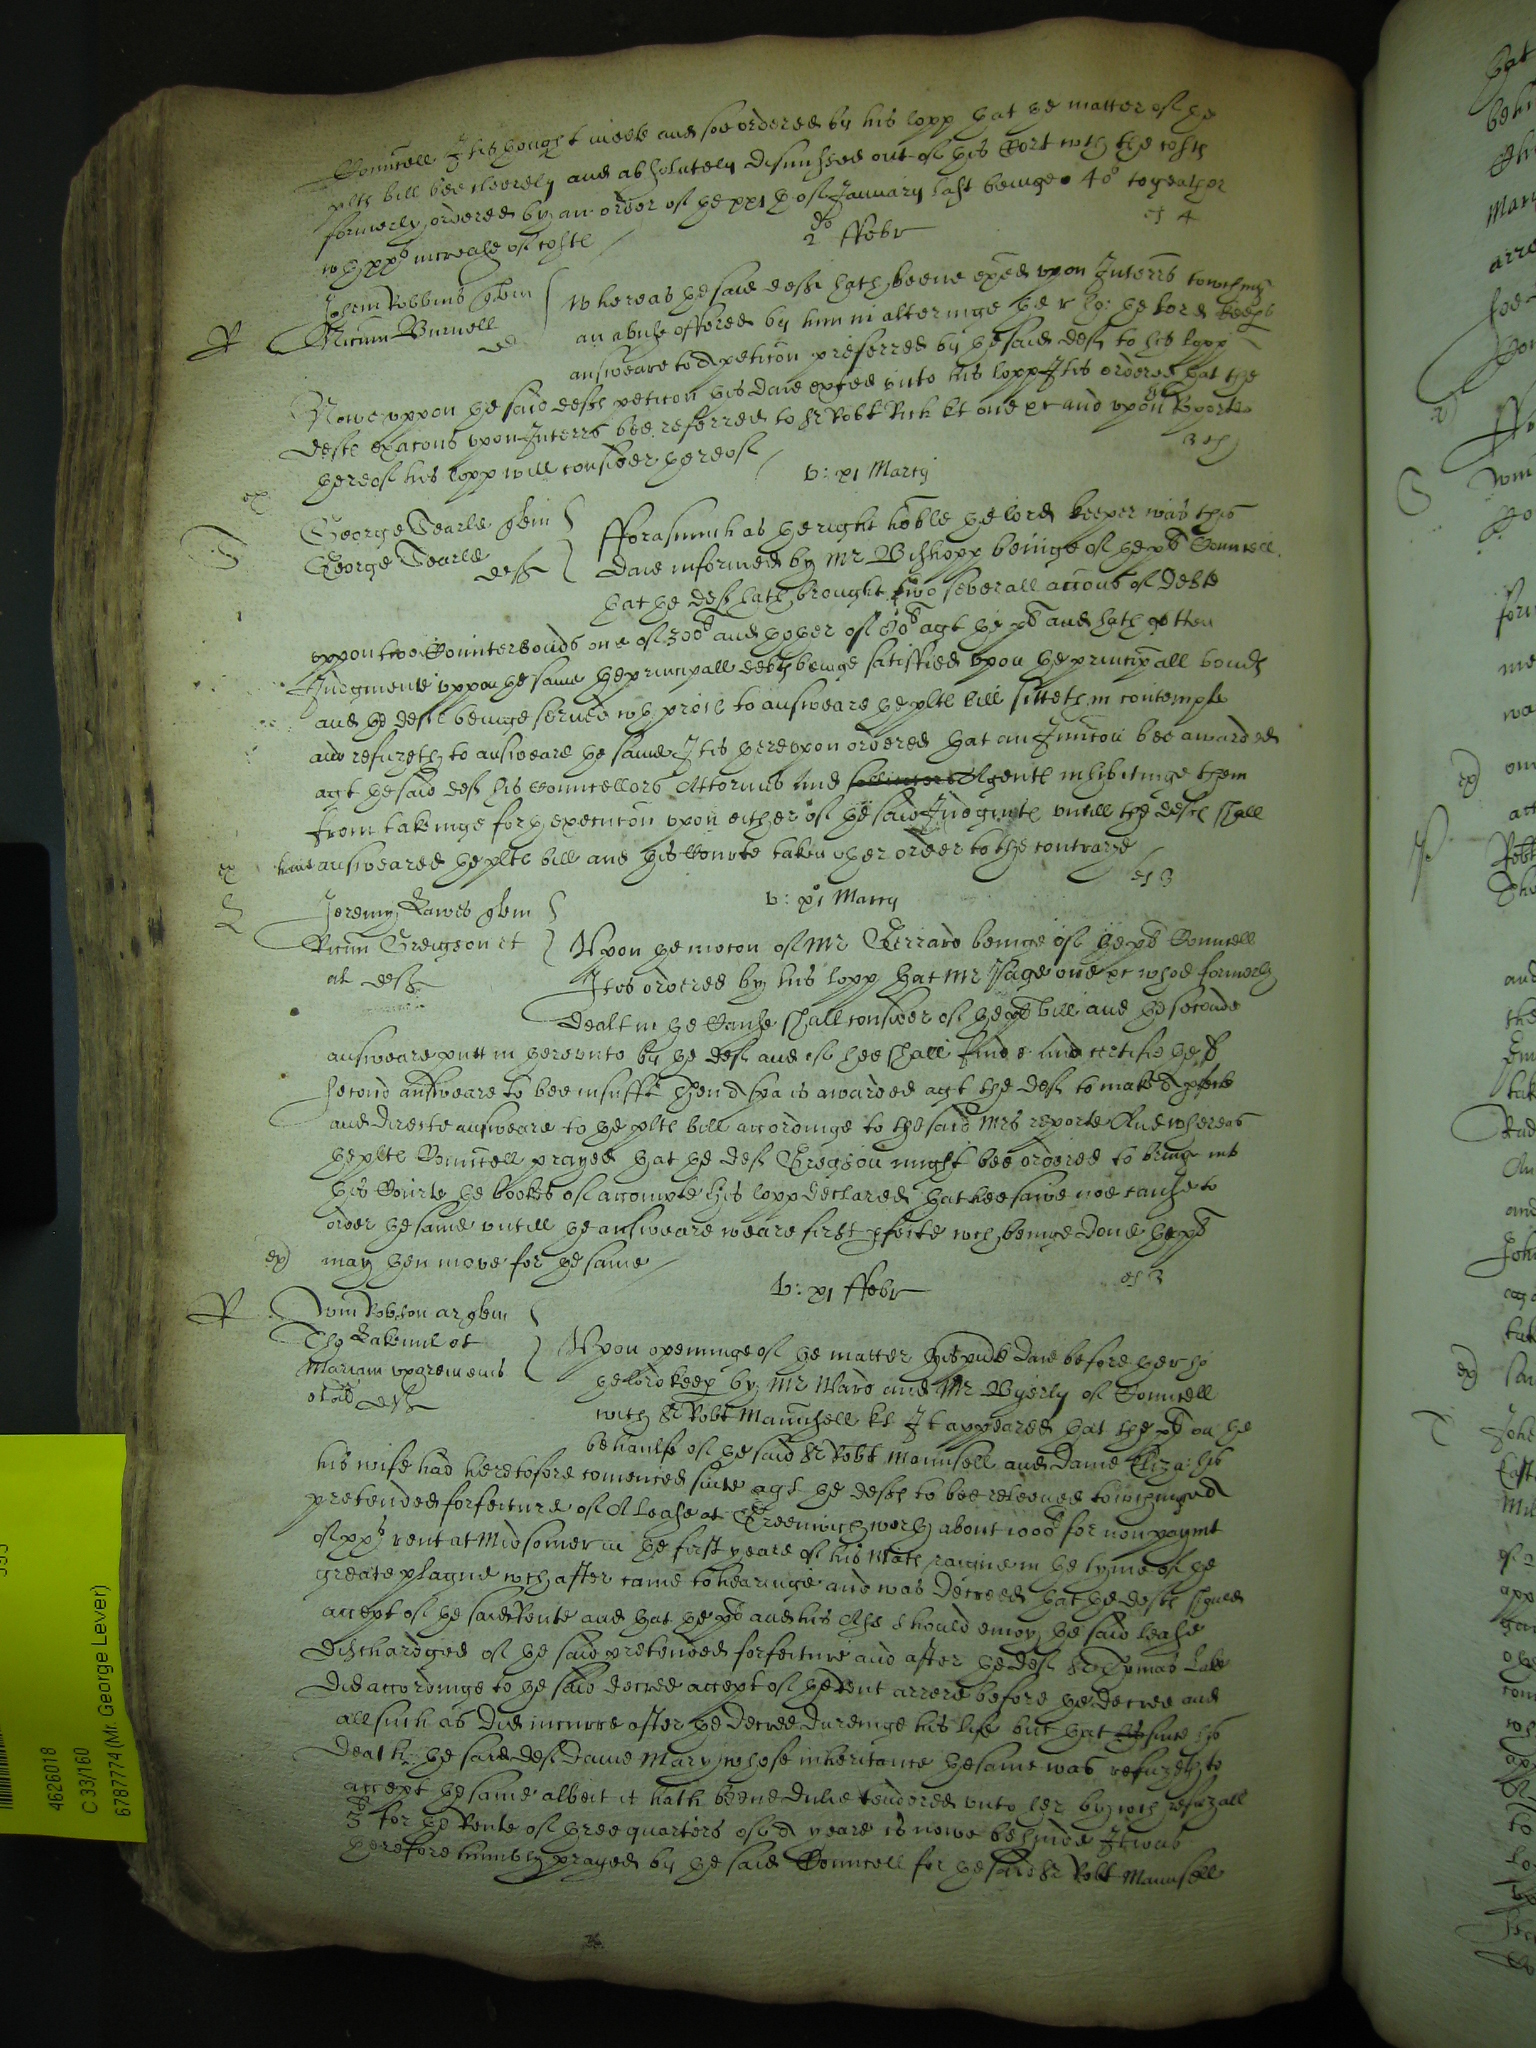 Councell It is thought meete and soe ordered by his lopp that the matter of the
plts bill bee cleerely and absolutely dismissed out of this Cort wth the costs
formerly ordered by an order of the xxith of January last beinge 40s togeather
wth xxs increase of costs
2do ffebr
John Robbins quer
Ricum Burnell
def
Whereas the said deft hath beene exied upon Interrs touchinge
an abuse offered by him in alteringe the r ho: the lord Keep
answeare to A peticon preferred by the said deft to his lopp
Nowe uppon the said defts peticon this daie exhted unto his lopp It is ordered that the
defts exacons upon Interrs bee referred to Sr Robt Rich kt one &c and upon his Reporte
thereof his lopp will consider thereof
v: xi Martij
George Searle quer
George Searle
def
fforasmuch as the right hoble the lord keeper was this
daie informed by Mr Bishopp beinge of the pts Councell
that the deft hath brought two severall accons of debte
uppon two Counterbonds one of 300l and thother of 80l agt the pt and hath gotten
Judgments uppon the same the principall debts beinge satisfied upon the principall bonds
and the deft beinge served wth proces to answeare the plts bill sitteth in contempte
and refuseth to answeare the same It is thereupon ordered that an Iniuncon bee awarded
agt the said deft his Councellors Attornies and sollicitors Agents inhibitinge them
from takeinge forth execucon upon either of the said Judgmts untill the defts shall
have answeared the plts bill and this Courte taken other order to the contrary
v: xi Martij
Jeremy Lawes quer
Ricum Greigson et
al def
Upon the mocon of Mr Gerrard beinge of the pts Councell
It is ordered by his lopp that Mr Page one &c whoe formerly
dealt in the Cause shall consider of the pts bill and the seconde
answeare putt in thereunto by the deft and if hee shall finde and certifie the sd
second answeare to bee insufft Then A spa is awarded agt the deft to make A pfecte
and directe answeare to the plts bill accordinge to the said Mrs reporte And whereas
the plts Councell prayed that the deft Gregson might bee ordered to bringe into
this Courte the bookes of accompte his lopp declared that hee sawe noe cause to
order the same untill the answeare weare first pfecte wch beinge done the pt
may then move for the same
v: xi ffebr
Wm Robson ar quer
Tho Lake mil et
Mariam uxorem eius
et al def
Upon openinge of the matter this pnte daie before the r ho
the lord keep by Mr Ward and Mr Byerly of Councell
with Sr Robt Maunsell kt It appeared that the pt on the
behaulfe of the said Sr Robt Maunsell and Dame Eliza: his
his wife had heretofore comenced suite agt the defts to bee releeved touchinge A
pretended forfeiture of A lease at Greenwich worth about 1000l for non paymt
of xxs rent at Midsomer in the first yeare of his Mats raigne in the tyme of the
greate plague wch after came to hearinge and was decreed that the defts should
accept of the said Rente and that the pt and his Ass should enioy the said lease
dischardged of the said pretended forfeiture and after the deft Sr Thomas Lake
did accordinge to the said decree accept of the Rent arrere before the decree and
all such as did incurre after the decree dureinge his life but that since his
death the said deft Dame Mary whose inheritance the same was refuseth to
accept the same albeit it hath beene dulie tendered unto her by wch refusall
for the Rente of three quarters of A yeare is nowe behinde It was
therefore humbly prayed by the said Councell for the said Sr Robt Maunsell
4626018
C 33/160
6787774 (Mr. George Lever)